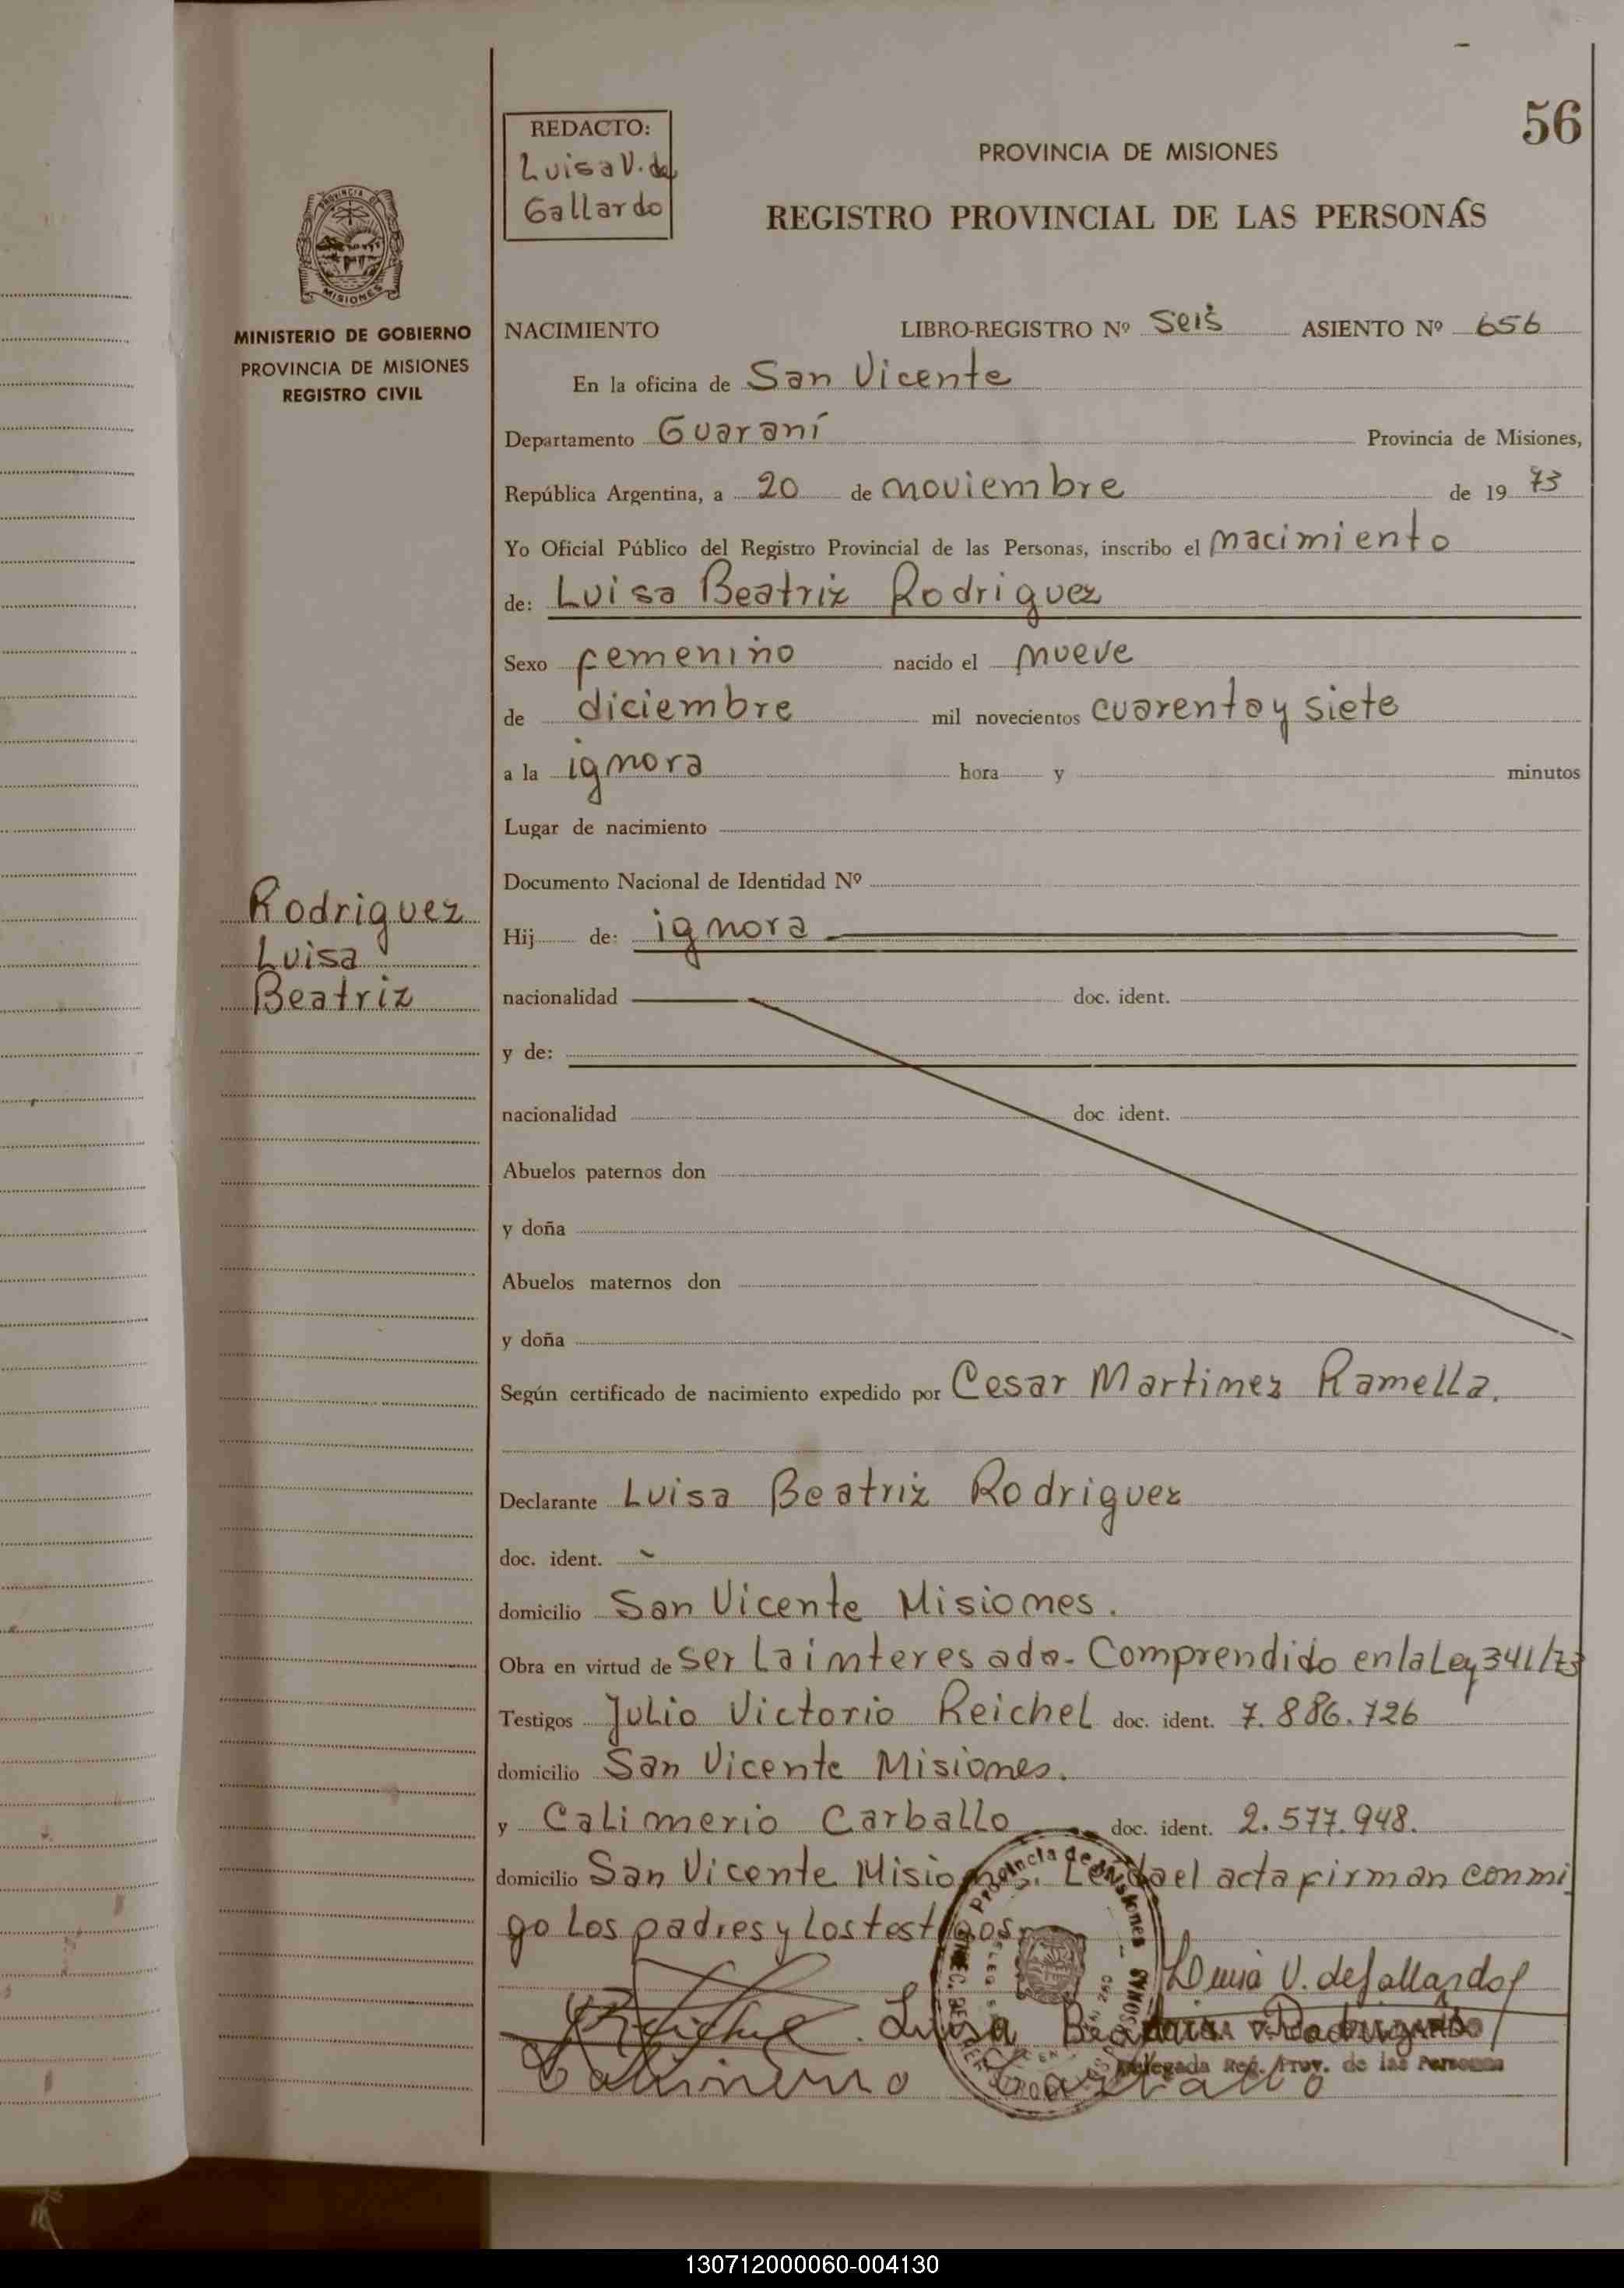 56
REDACTO:
Luisa V. de
Gallardo
PROVINCIA DE MISIONES
REGISTRO PROVINCIAL DE LAS PERSONAS
PROVINCIA DE
MISIONES
MINISTERIO DE GOBIERNO
PROVINCIA DE MISIONES
REGISTRO CIVIL
NACIMIENTO LIBRO-REGISTRO Nº Seis ASIENTO Nº 656
En la oficina de San Vicente
Departamento Guaraní Provincia de Misiones,
República Argentina, a 20 de noviembre de 19 73
Yo Oficial Público del Registro Provincial de las Personas, inscribo el nacimiento
de: Luisa Beatriz Rodriguez
Sexo femenino nacido el nueve
de diciembre mil novecientos cuarenta y siete
a la ignora hora y minutos
Lugar de nacimiento
Documento Nacional de Identidad Nº
Rodriguez
Luisa
Beatriz
Hij de: ignora
nacionalidad doc. ident.
y de:
nacionalidad doc. ident.
Abuelos paternos don
y doña
Abuelos maternos don
y doña
Según certificado de nacimiento expedido por Cesar Martinez Ramella.
Declarante Luisa Beatriz Rodriguez
doc. ident.
domicilio San Vicente Misiones.
Obra en virtud de ser la interesada- Comprendido en la Ley 341/73
Testigos Julio Victorio Reichel doc. ident. 7.886.726
domicilio San Vicente Misiones.
y Calimerio Carballo doc. ident. 2.577.948.
domicilio San Vicente Misiones. Leida el acta firman conmi
go los padres y los testigos
Luisa V. de Gallardo
Reichel. Luisa Beatriz Rodriguez
Delegada Reg. Prov. de las Personas
Calimerio Carballo
130712000060-004130